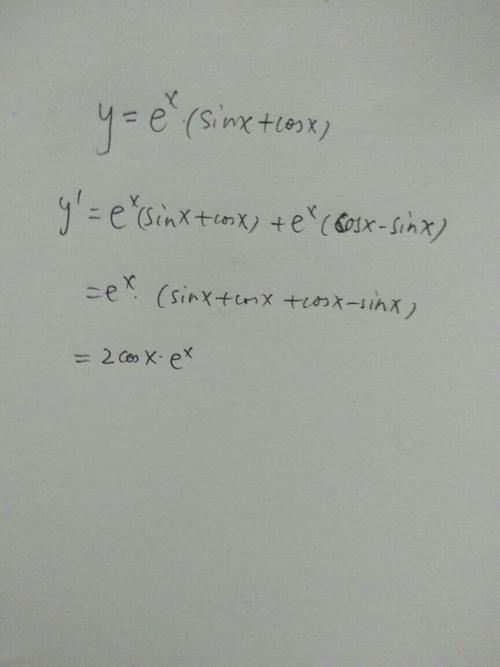 y = eˣ·(sinx+cosx)
y' = eˣ(sinx+cosx) + eˣ(cosx-sinx)
= eˣ·(sinx+cosx+cosx-sinx)
= 2cosx·eˣ